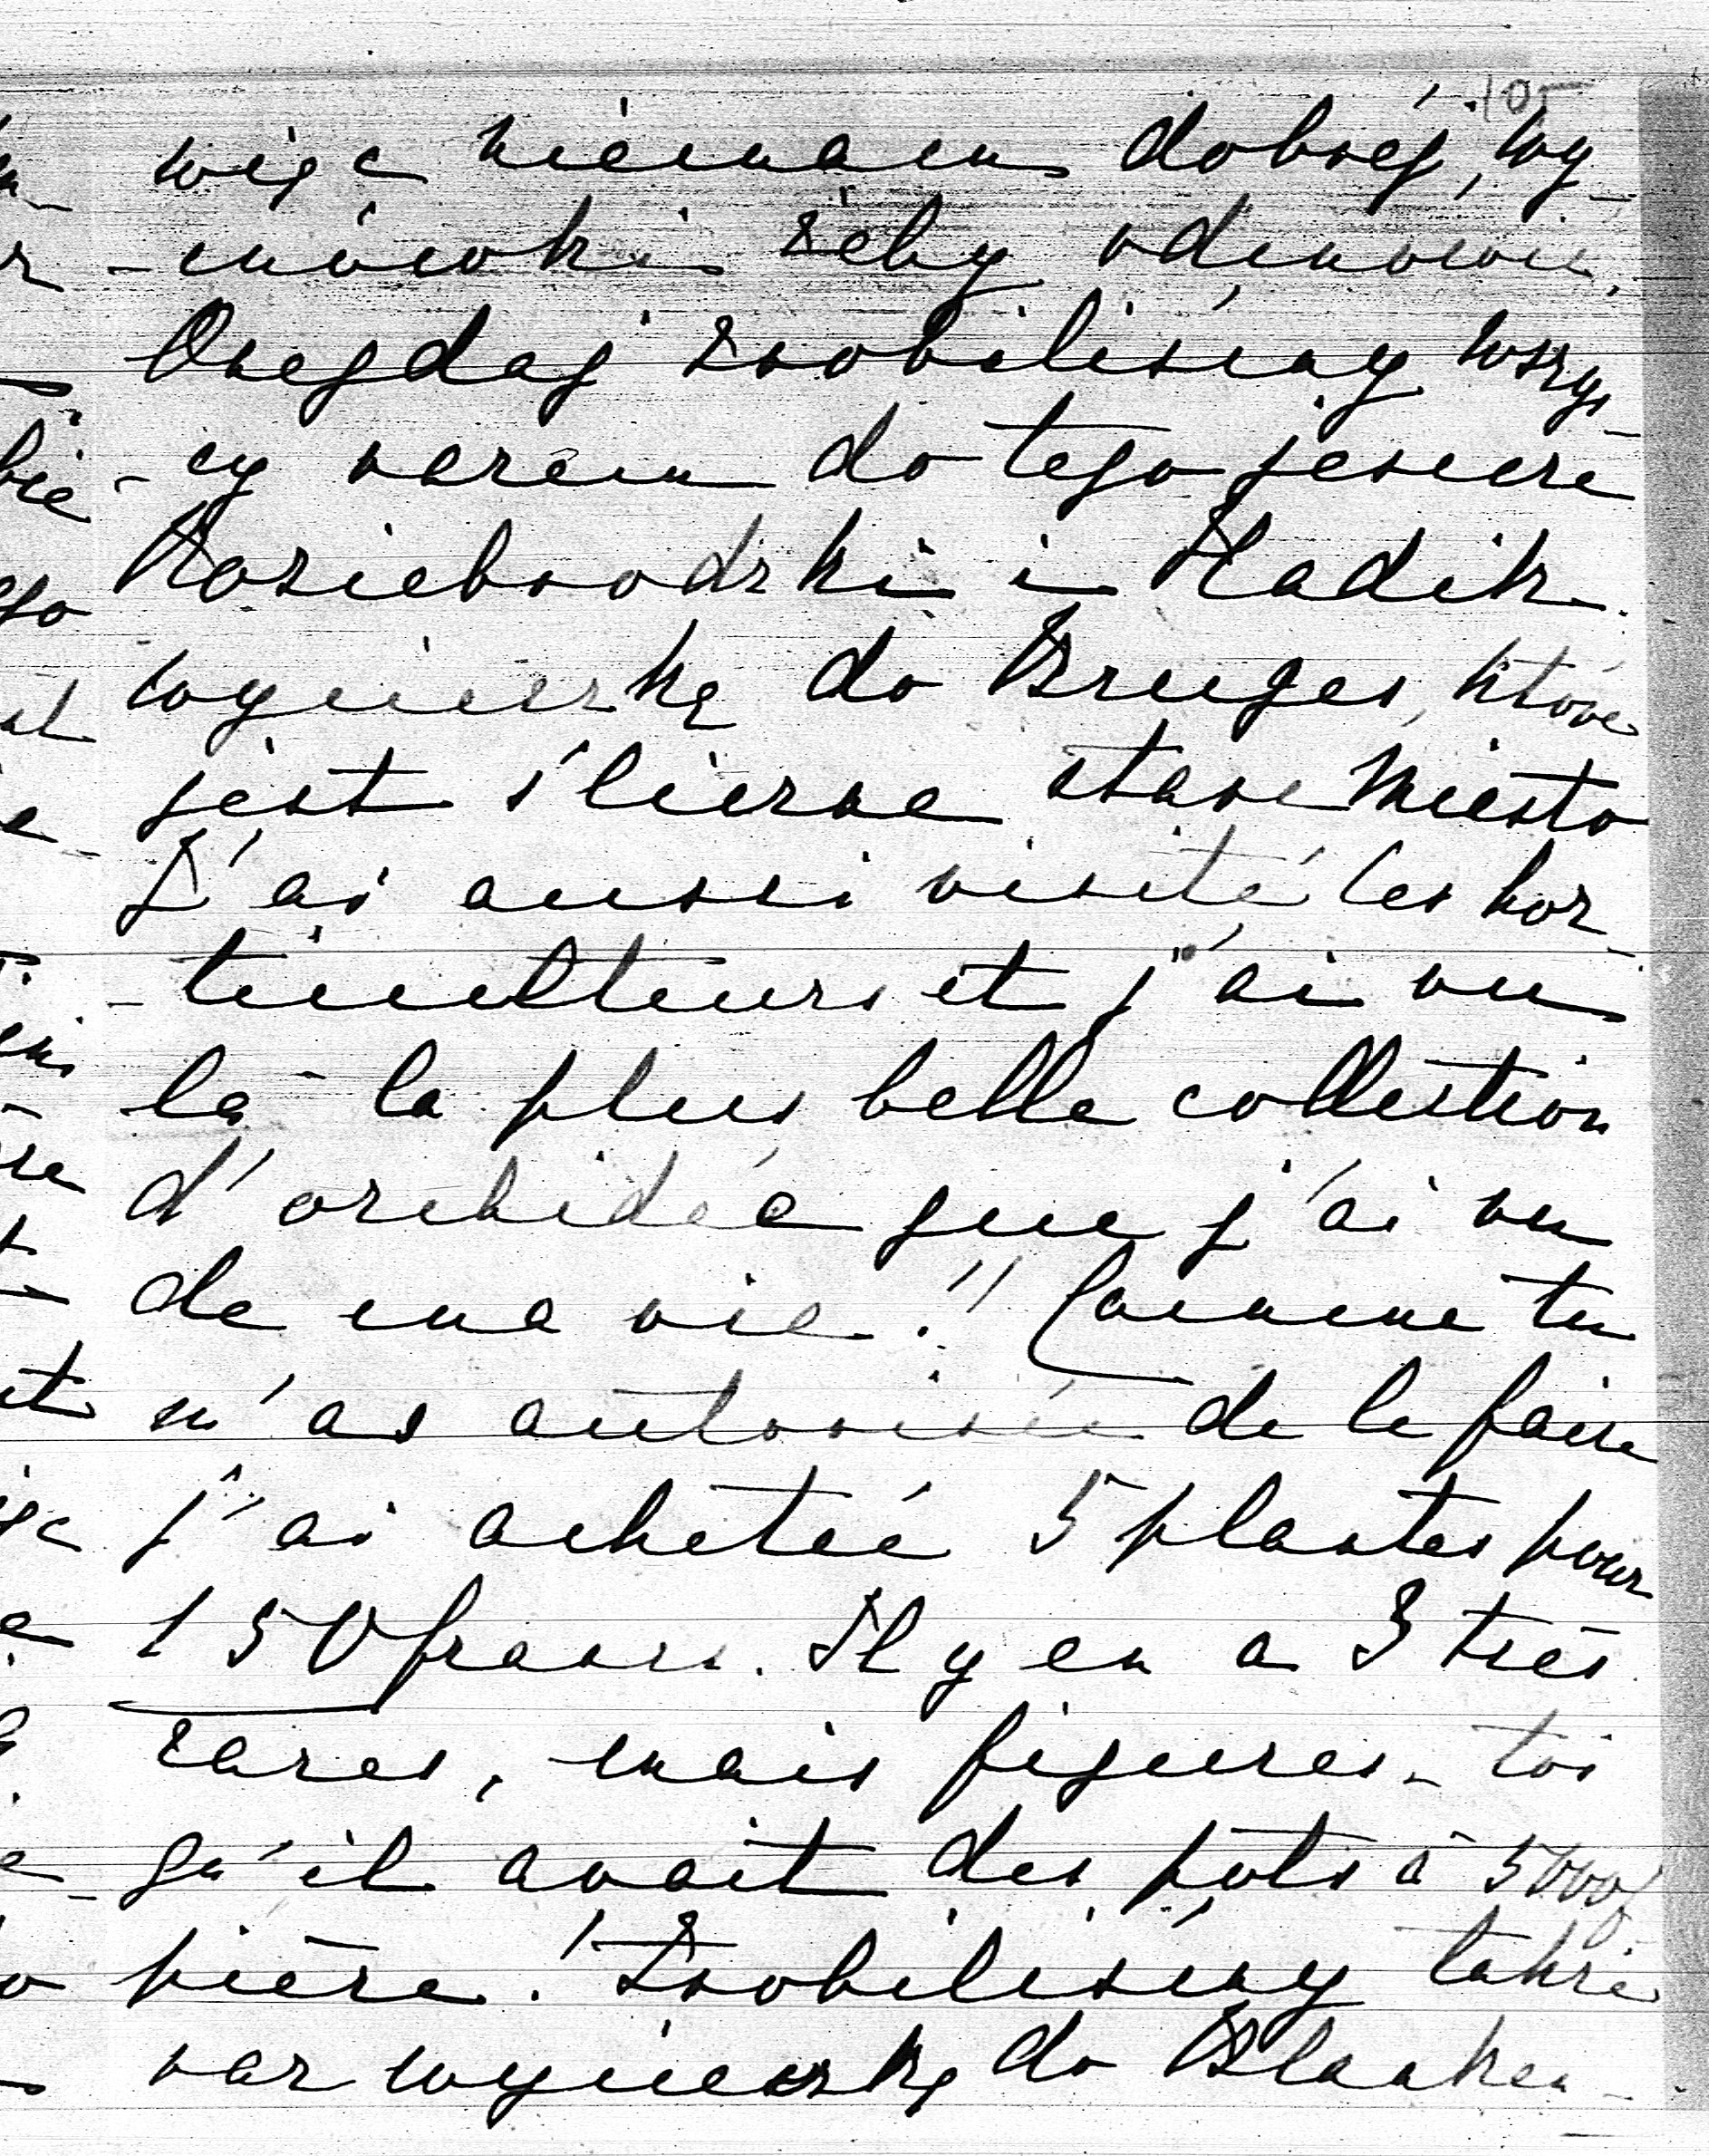 105
więc niemam dobréj, wy-
-mówki żeby odmówić,
Onegdaj zrobiliśmy wszys-
-cy razem do tego jeszcze
Koziebrodzki i Hadik
wycieczkę do Bruges, które
jest śliczne stare miasto
J'ai aussi visité les hor-
-ticulteurs et j'ai vu
là la plus belle collection
d'orchidée que j'ai vu
de ma vie!! Comme tu
m'as autorisée de le faire
j'ai achetée 5 plantes pour
150 francs. Il y en a 3 très
rares, mais figures-toi
qu'il avait des pots à 5000f
pièce! Zrobiliśmy także
raz wycieczkę do Blanken-